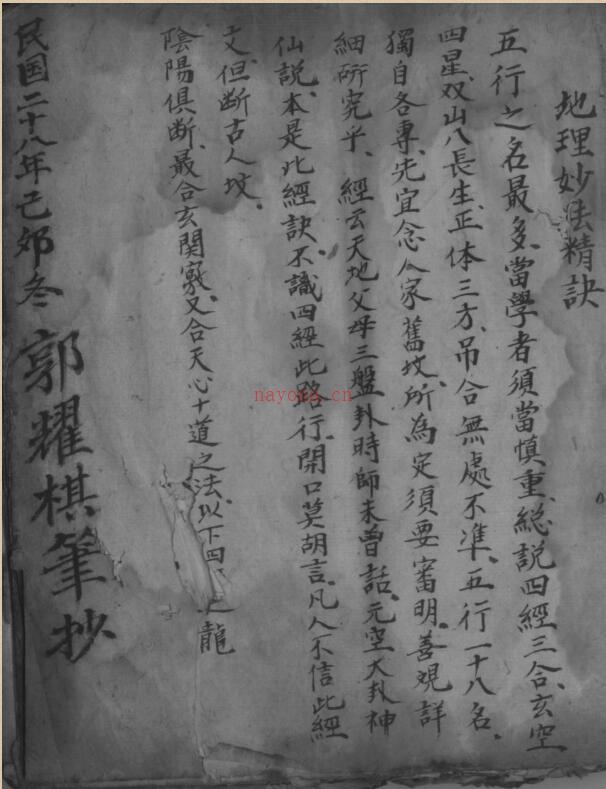 地理妙法精訣
五行之名最多、當學者須當慎重、総説四經三合、玄空
四星、双山八長生、正体三方、吊合無處不準、五行一十八名、
獨自各專、先宜念人家舊坟、所為定須要審明、善观詳
細研究乎、經云天地父母三盤卦時師未曾話、元空大卦神
仙説、本是此經訣、不識四經此路行、開口莫胡言、凡人不信此經
文、但断古人坟、
陰陽俱断、最合玄関竅、又合天心十道之法、以下四 龍
民国二十八年己卯冬 郭耀棋筆抄
nayona.cn